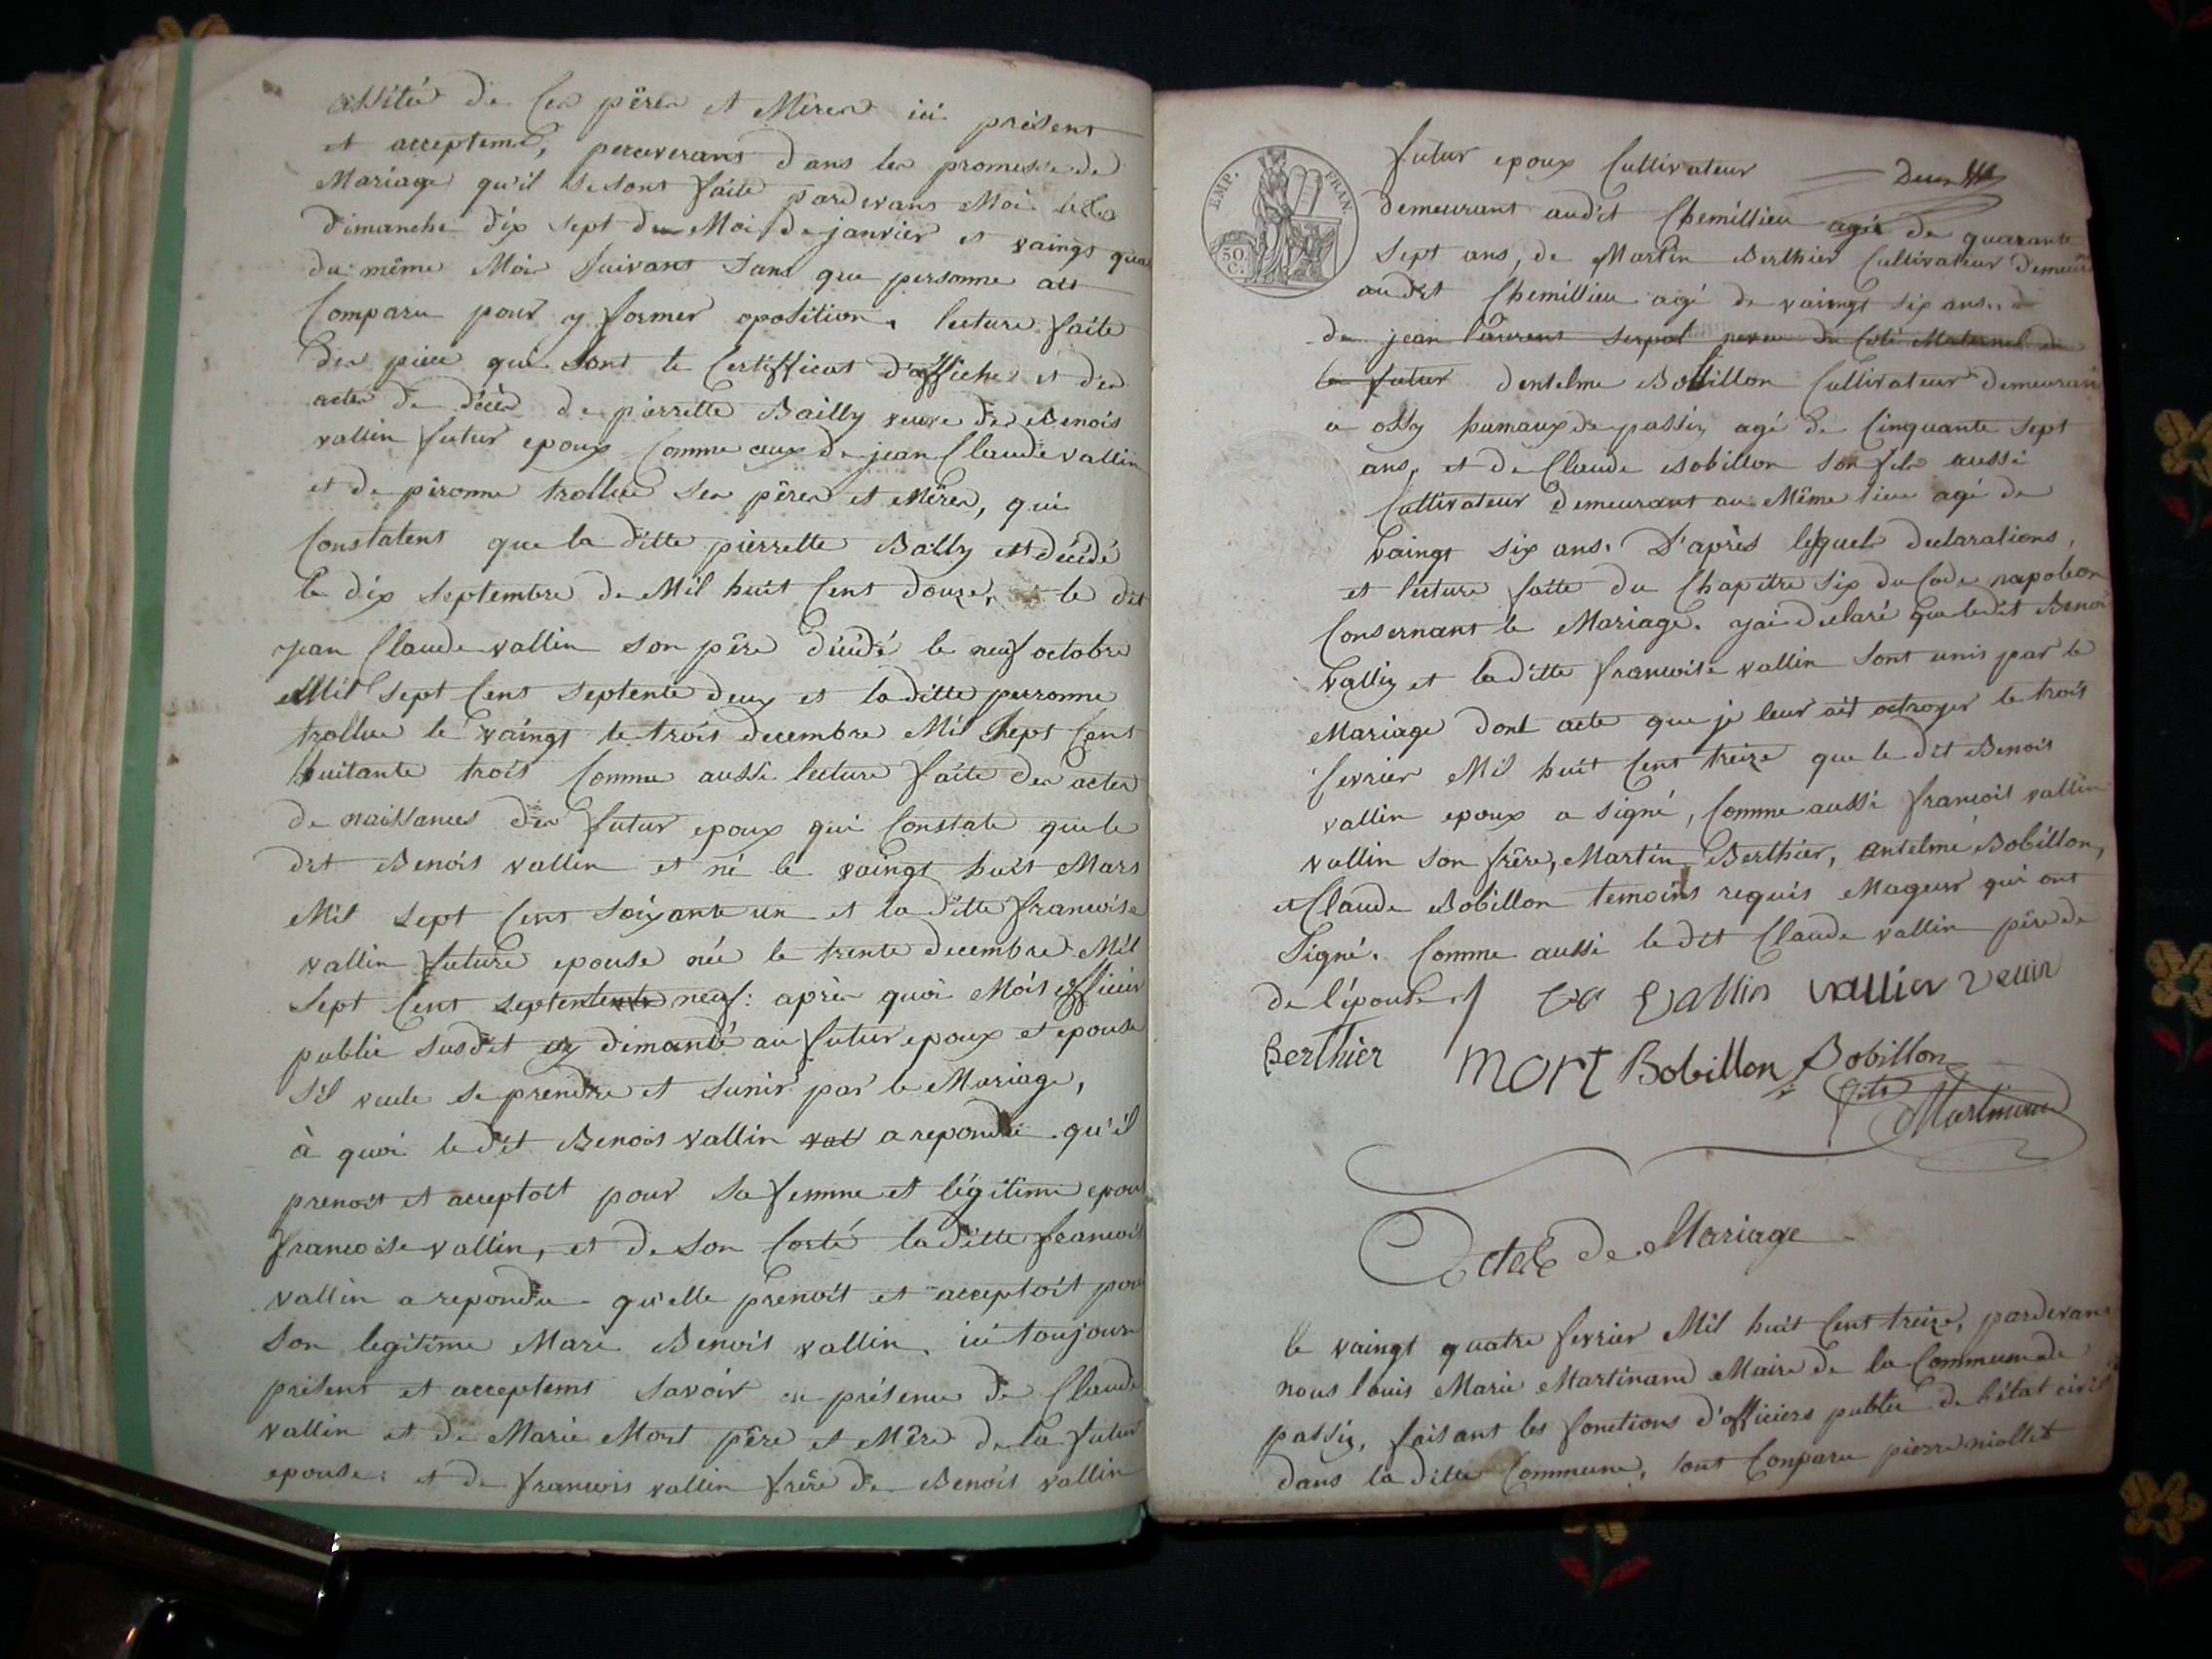 assité de ces pères et Mères ici présent
et acceptems, perceverans dans les promesse de
Mariage qu'il se sont faite pardevans Moi les
dimanche dix sept du Moi de janvier et vaingt qua
du même Moi suivans sans que personne aie
Comparu pour y former oposition, lecture faite
des piece qui sont le Certifficat d'affiche et des
actes de décès de pierrette Bailly veuve de Benois
vallin futur epoux Comme ceux de jean Claude vallin
et de pironne trollue ses pères et Mères, qui
Constatent que la ditte pierrette Bailly est décidé
le dix septembre de Mil huit Cent douze, et le dit
jean Claude vallin son père décidé le neuf octobre
Mil sept Cent septente deux et la ditte perronne
trollue le vaingt te trois decembre Mil Sept Cent
huitante trois Comme aussi lecture faite des actes
de naissances des futur epoux qui Constate que le
dit Benois vallin et né le vaingt huit Mars
Mil sept Cent soixante un et la ditte francoise
vallin future epouse née le trente decembre Mil
sept Cent septente neuf: après quoi Mois officier
public susdit ez dimandé au futur epoux et epouse
s'il veule se prendre et sunir par le Mariage,
à quoi le dit Benois vallin vall a repondu qu'il
prenoit et acceptoit pour sa femme et légitime epous
francoise vallin, et de son Corté la ditte francois
vallin a repondu qu'elle prenoit et acceptoit pou
son legitime Mari Benois vallin, ici toujours
présent et acceptems savoir en présence de Claude
vallin et de Marie Mort père et Mère de la futur
epouse; et de francois vallin frère de Benois vallin
EMP. FRAN.
50 C.
futur epoux Cultivateur
demeurant audit Chemillieu agés de quarante
sept ans, de Martin Berthier Cultivateur demeur
audit Chemillieu agé de vaingt six ans, d
de jean laurent serpol neveu du Coté Maternel de
le futur dentelme Bobillon Cultivateur demeurant
a ossy hamaux de passin agé de Cinquante sept
ans, et de Claude Bobillon son fils aussi
Cultivateur demeurant au Même lieu agé de
vaingt six ans. D'après lesquels declarations,
et lecture faite du Chapitre six du Code napoleon
Consernant le Mariage. jai declaré que ledit Benoi
vallin et la ditte francoise vallin sont unis par le
Mariage dont acte que je leur ait octroyer le trois
fevrier Mil huit Cent treize que le dit Benois
vallin epoux a signé, Comme aussi francois vallin
vallin son frère, Martin Berthier, antelme Bobillon,
et Claude Bobillon temoins requis Mageur qui ont
Signé. Comme aussi le dit Claude vallin père de
de l'épouse vallin vallin vallin
Berthier mort Bobillon Bobillon
fils
Martinand
Acte de Mariage
le vaingt quatre fevrier Mil huit Cent treize, pardevans
nous louis Marie Martinand Maire de la Commune de
passin, faisant les fonctions d'officiers public de l'état civil
dans la ditte Commune, sont Conparu pierre niollet